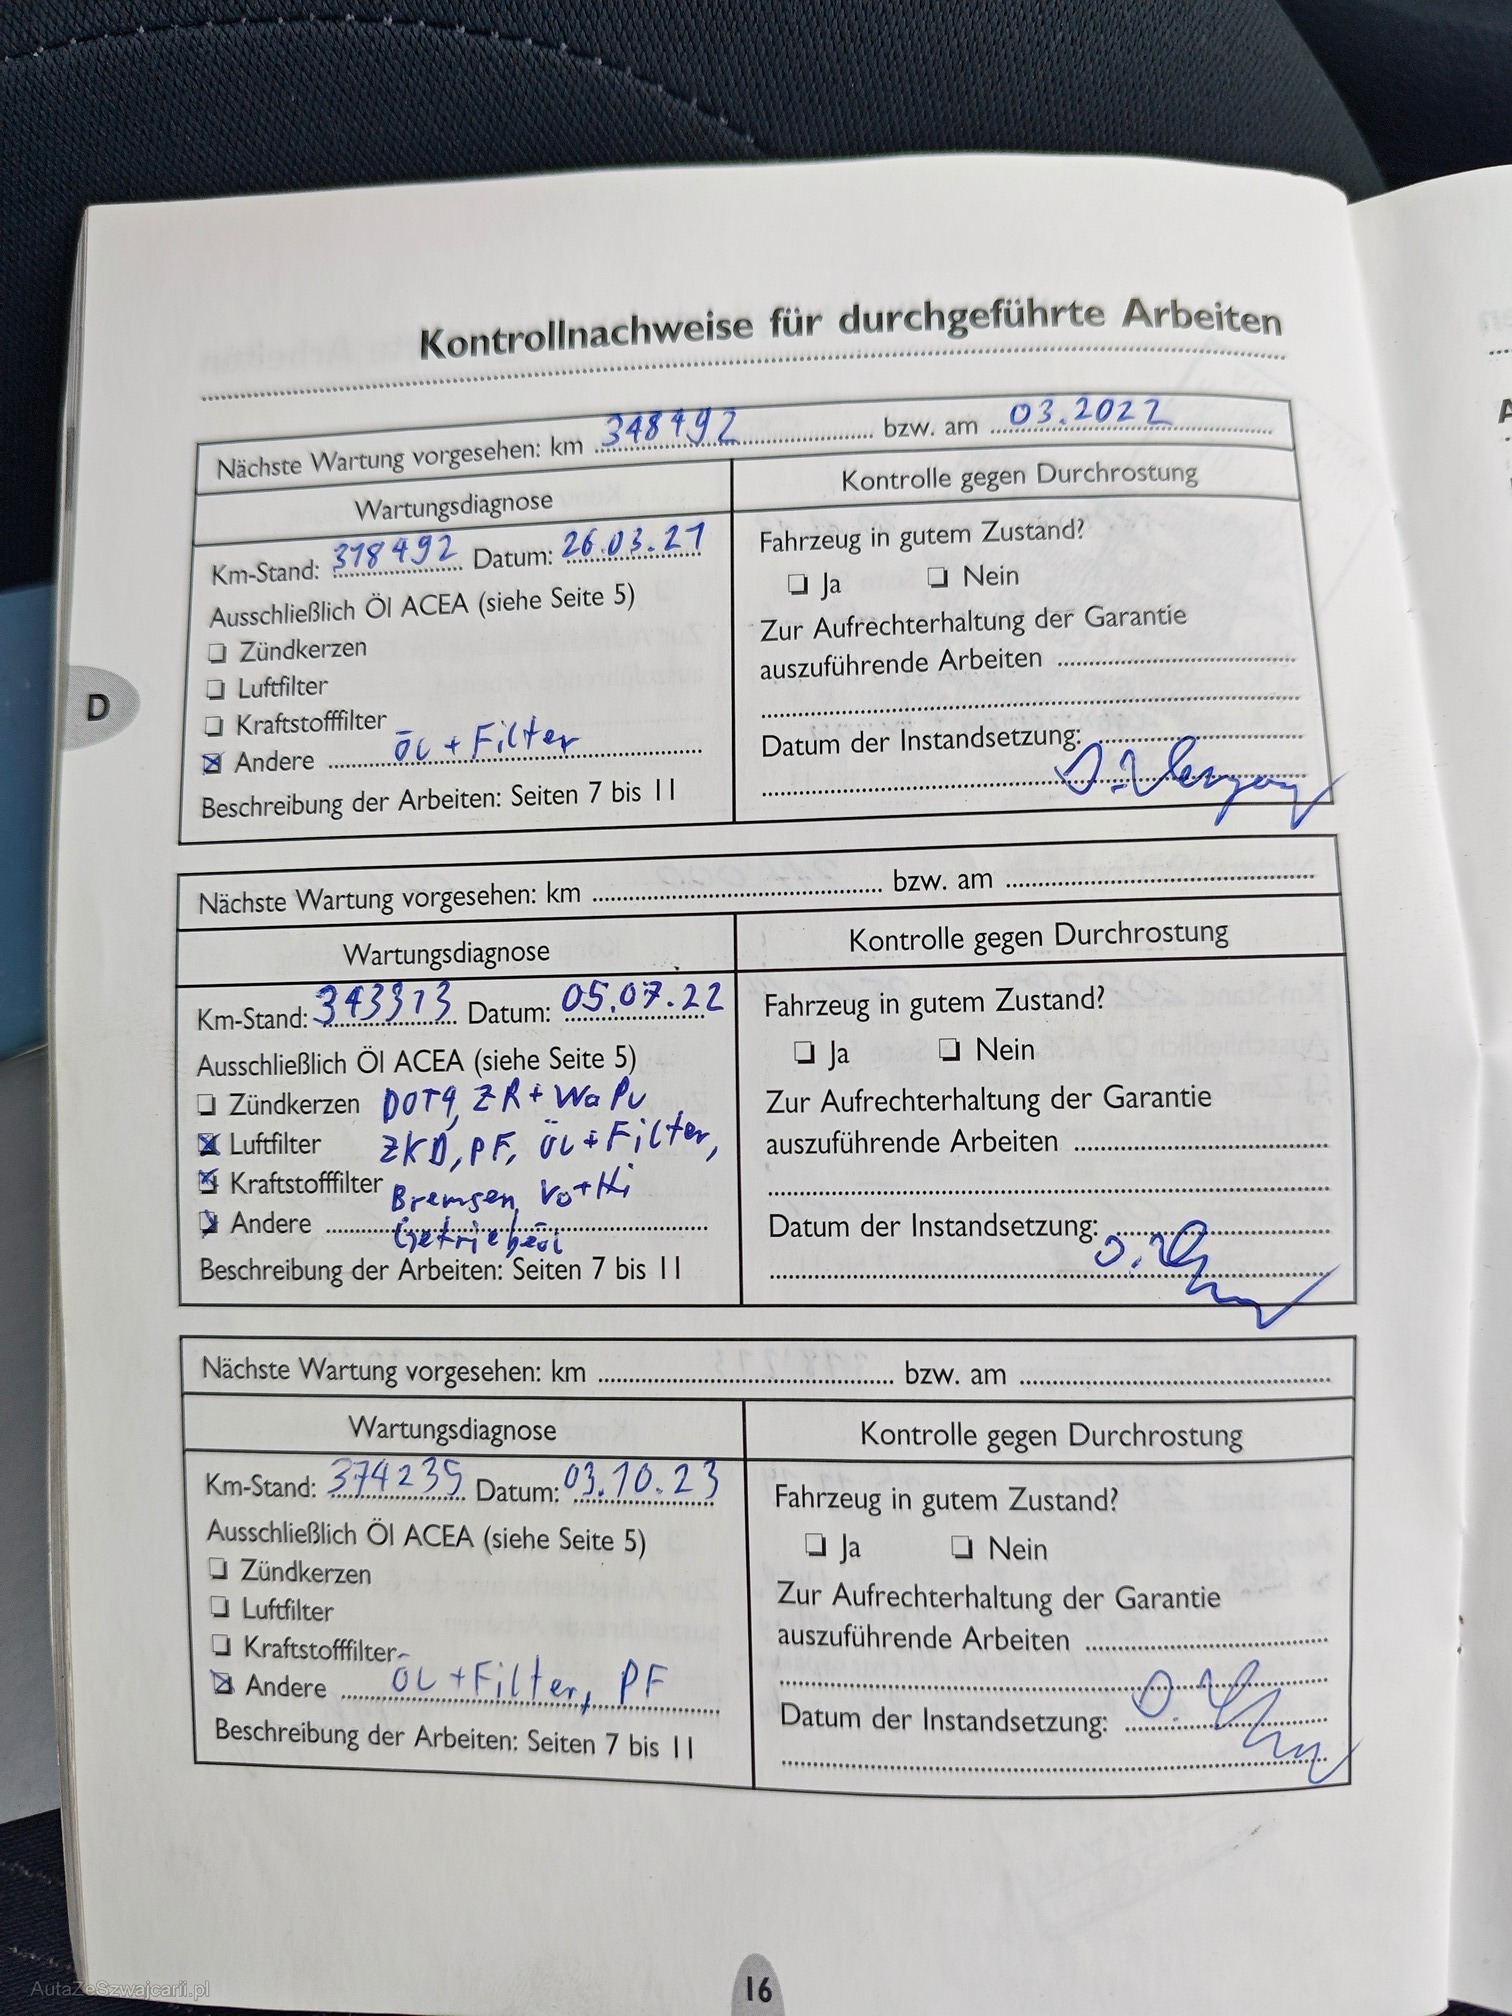 Kontrollnachweise für durchgeführte Arbeiten
Nächste Wartung vorgesehen: km 348492 bzw. am 03.2022
Wartungsdiagnose
Kontrolle gegen Durchrostung
Km-Stand: 318492 Datum: 26.03.21
Fahrzeug in gutem Zustand?
Ja Nein
Ausschließlich Öl ACEA (siehe Seite 5)
Zündkerzen
Luftfilter
Kraftstofffilter
Andere ÖL + Filter
Beschreibung der Arbeiten: Seiten 7 bis 11
Zur Aufrechterhaltung der Garantie
auszuführende Arbeiten
Datum der Instandsetzung:
D
Nächste Wartung vorgesehen: km bzw. am
Wartungsdiagnose
Kontrolle gegen Durchrostung
Km-Stand: 343313 Datum: 05.07.22
Fahrzeug in gutem Zustand?
Ja Nein
Ausschließlich Öl ACEA (siehe Seite 5)
Zündkerzen DOT4, ZR + WaPu
Luftfilter ZKD, PF, ÖL + Filter,
Kraftstofffilter Bremsen Vo + Hi
Andere Getriebeöl
Beschreibung der Arbeiten: Seiten 7 bis 11
Zur Aufrechterhaltung der Garantie
auszuführende Arbeiten
Datum der Instandsetzung:
Nächste Wartung vorgesehen: km bzw. am
Wartungsdiagnose
Kontrolle gegen Durchrostung
Km-Stand: 374235 Datum: 03.10.23
Fahrzeug in gutem Zustand?
Ja Nein
Ausschließlich Öl ACEA (siehe Seite 5)
Zündkerzen
Luftfilter
Kraftstofffilter
Andere ÖL + Filter, PF
Beschreibung der Arbeiten: Seiten 7 bis 11
Zur Aufrechterhaltung der Garantie
auszuführende Arbeiten
Datum der Instandsetzung:
16
AutaZeSzwajcarii.pl